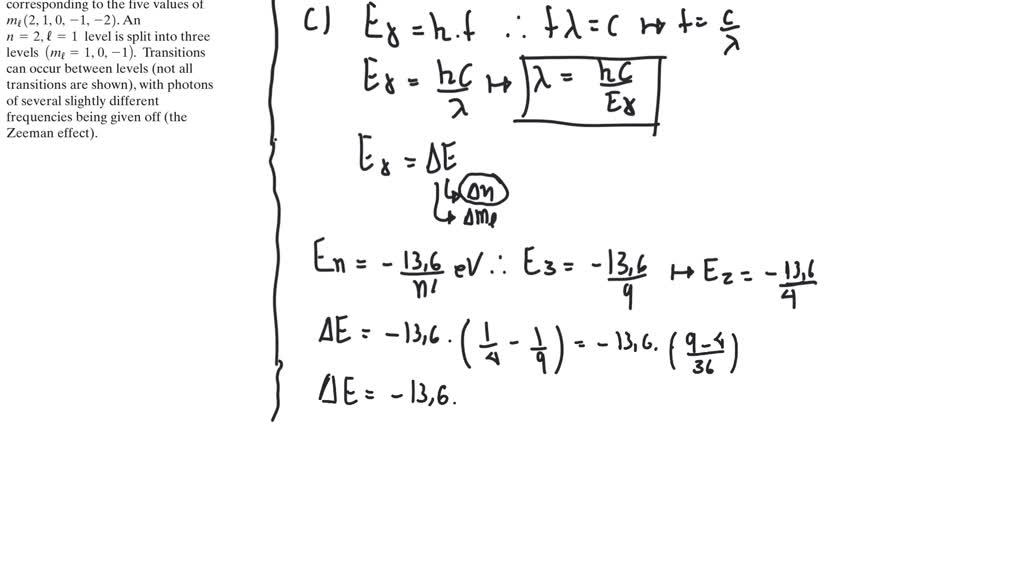 corresponding to the five values of
mℓ(2, 1, 0, −1, −2). An
n = 2, ℓ = 1 level is split into three
levels (mℓ = 1, 0, −1). Transitions
can occur between levels (not all
transitions are shown), with photons
of several slightly different
frequencies being given off (the
Zeeman effect).
c) Eγ = h.f ∴ fλ = c ↦ f = c/λ
Eγ = hc/λ ↦ λ = hc/Eγ
Eγ = ΔE
↳ Δn
↳ Δmℓ
En = −13,6/n² eV ∴ E3 = −13,6/9 ↦ E2 = −13,6/4
ΔE = −13,6. (1/4 − 1/9) = −13,6. (9−4/36)
ΔE = −13,6.